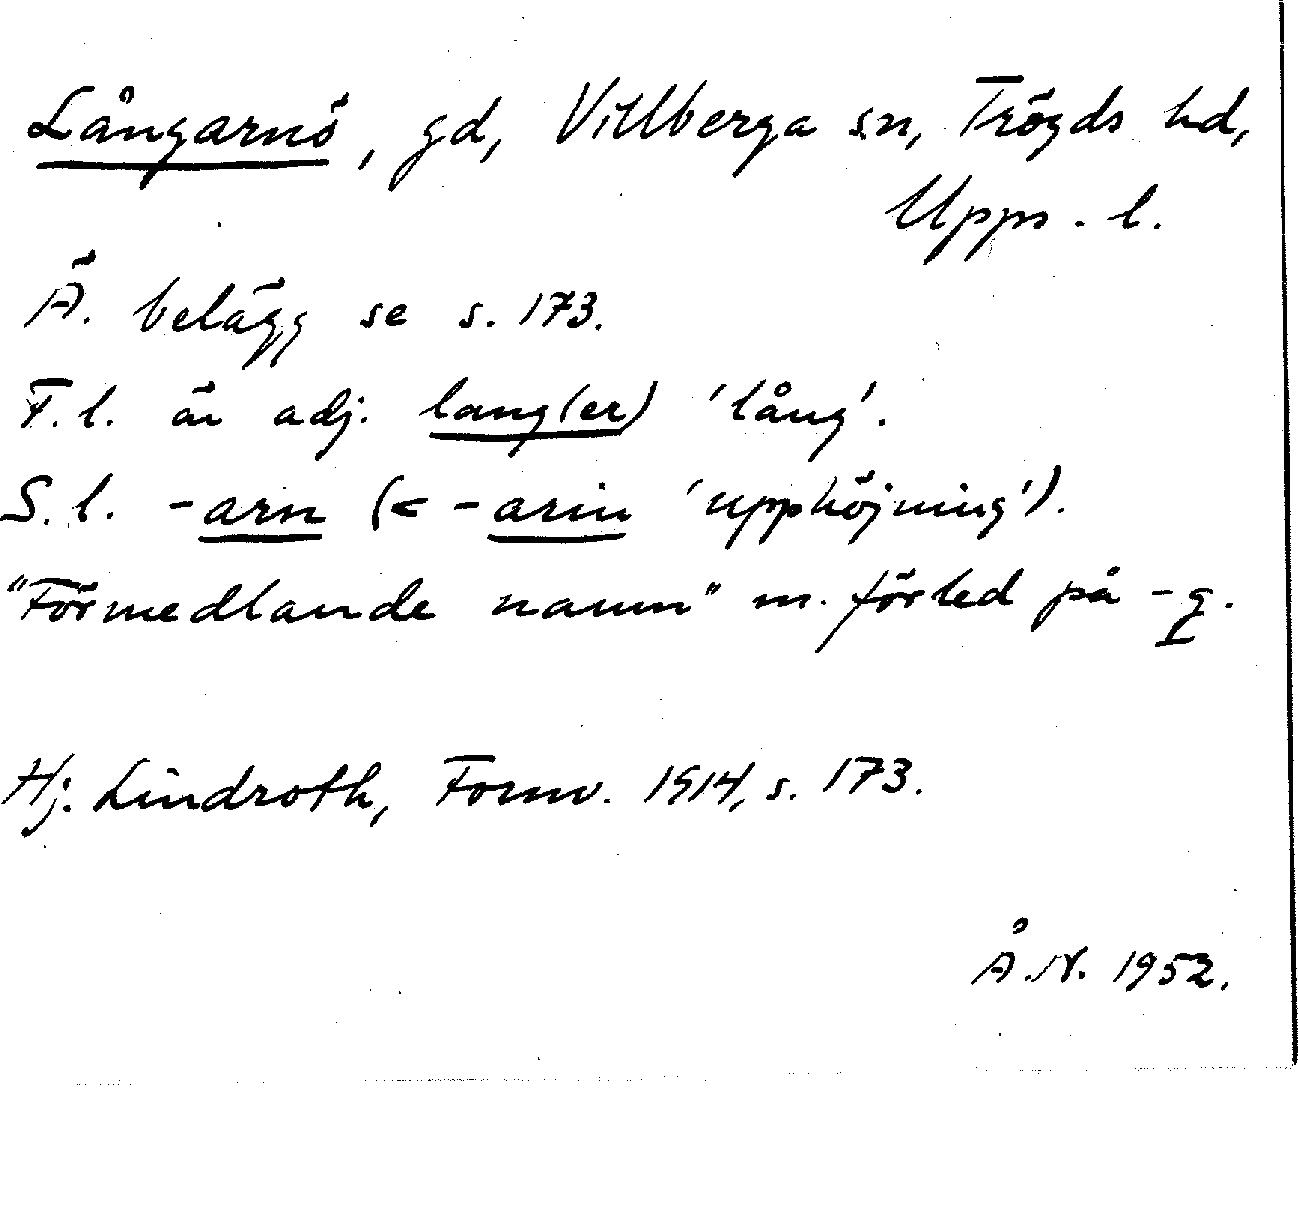 Långarnö, gd, Villberga sn, Trögds hd,
Upps. l.
Ä. belägg se s. 173.
F.l. är adj. lang(er) 'lång'.
S.l. -arn (< -arin 'upphöjning').
"Förmedlande namn" m. förled på -g.
Hj. Lindroth, Fornv. 1914, s. 173.
Å.N. 1952.